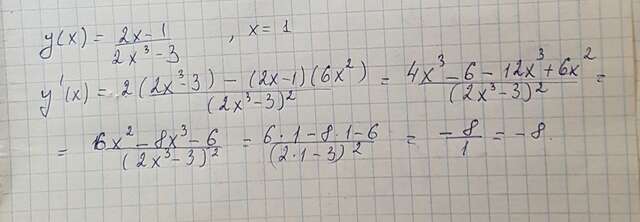 y(x) = (2x-1)/(2x³-3) , x = 1
y'(x) = (2(2x³-3) - (2x-1)(6x²))/(2x³-3)² = (4x³-6-12x³+6x²)/(2x³-3)² =
= (6x²-8x³-6)/(2x³-3)² = (6·1-8·1-6)/(2·1-3)² = -8/1 = -8.